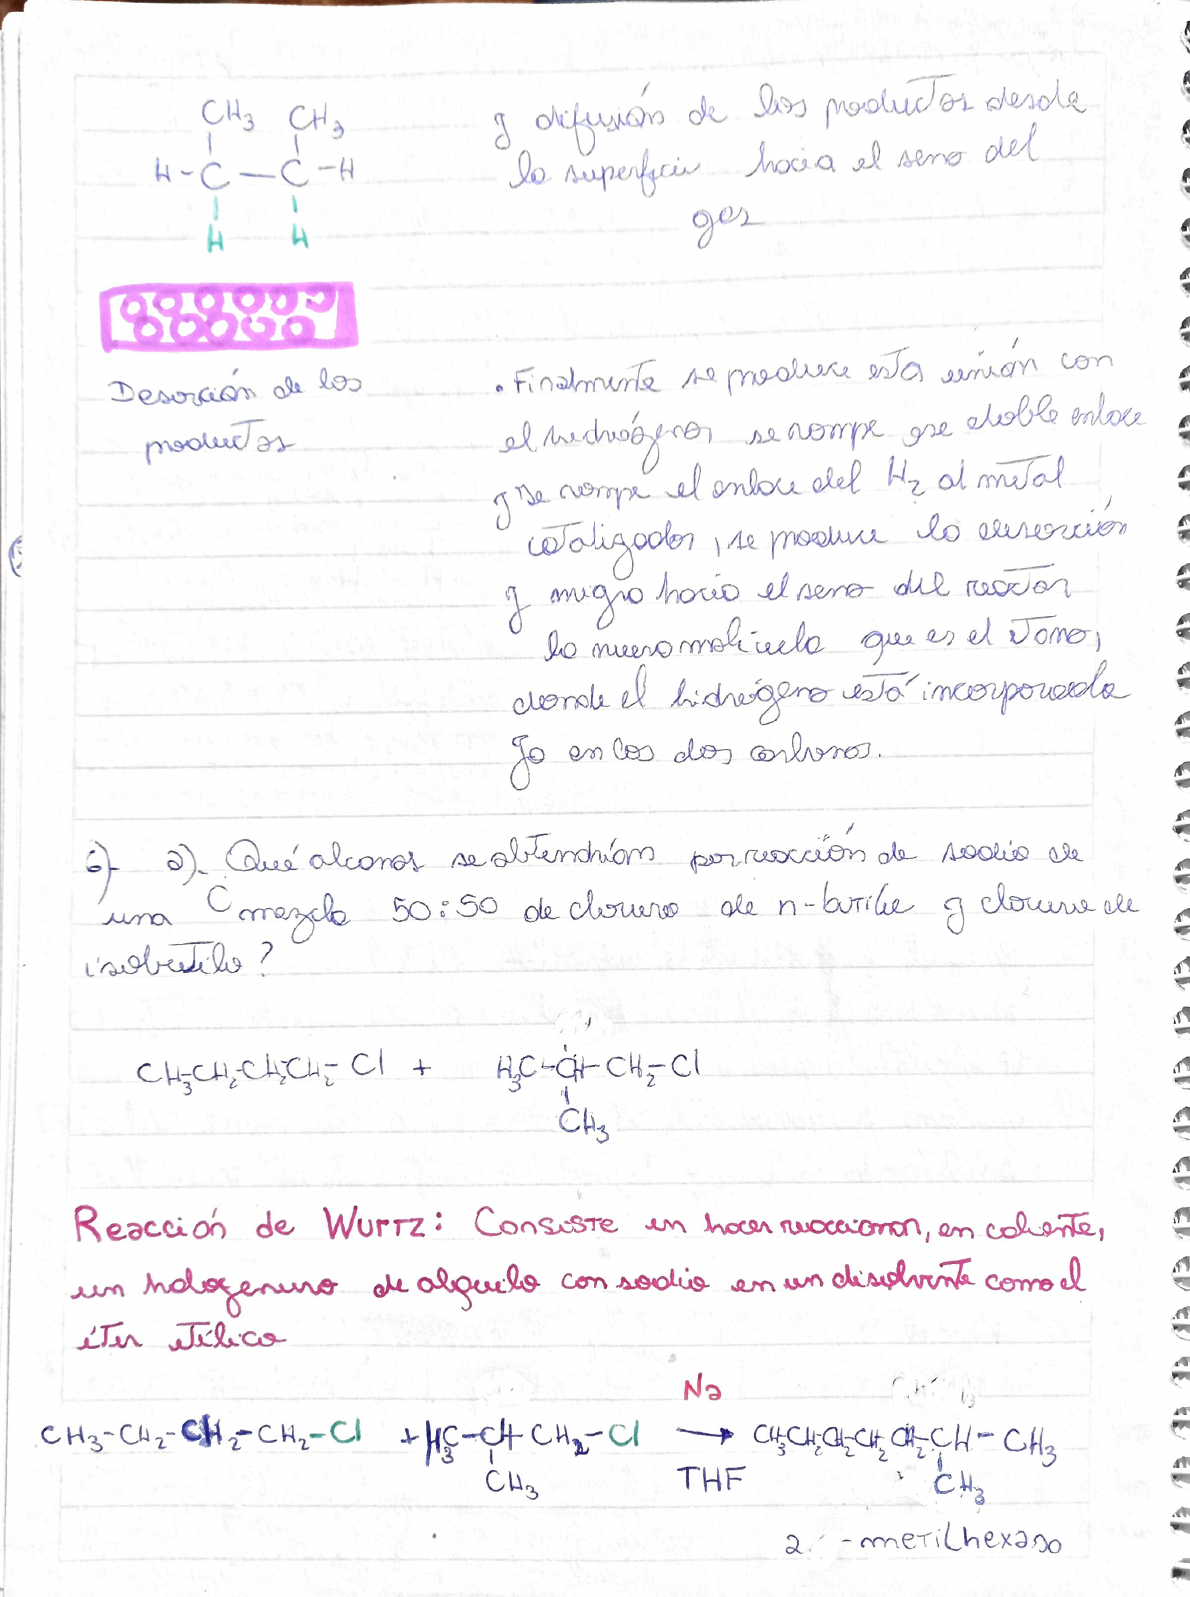 CH3 CH3
H-C-C-H
H H
y difusión de los productos desde
la superficie hacia el seno del
gas
Desorción de los
productos
• Finalmente se produce esta unión con
el hidrógeno, se rompe ese doble enlace
y se rompe el enlace del H2 al metal
catalizador, se produce la deserción
y migra hacia el seno del reactor
la nueva molécula que es el
donde el hidrógeno está incorporada
ya en los dos carbonos.
6) a). Qué alcanos se obtendrían por reacción de sodio de
una mezcla 50:50 de cloruro de n-butilo y cloruro de
isobutilo?
CH3-CH2-CH2-CH2-Cl + H3C-CH-CH2-Cl
CH3
Reacción de Wurtz: Consiste en hacer reaccionar, en caliente,
un halogenuro de alquilo con sodio en un disolvente como el
éter etílico
Na
CH3-CH2-CH2-CH2-Cl + H3C-CH-CH2-Cl → CH3CH2CH2CH2CH2-CH-CH3
CH3 THF CH3
2-metilhexano